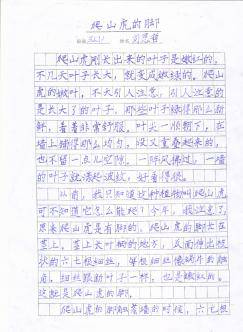 爬山虎的脚
爬山虎刚长出来的叶子是嫩红的,
不几天叶子长大,就变成嫩绿的。爬山
虎的嫩叶,不大引人注意,引人注意的
是长大了的叶子。那些叶子绿得那么新
鲜,看着非常舒服,叶尖一顺朝下,在
墙上铺得那么均匀,没有重叠起来的,
也不留一点儿空隙。一阵风拂过,一墙
的叶子就漾起波纹,好看得很。
以前,我只知道这种植物叫爬山虎
可不知道它怎么能爬。今年,我注意了,
原来爬山虎是有脚的。爬山虎的脚长在
茎上。茎上长叶柄的地方,反面伸出枝
状的六七根细丝,每根细丝像蜗牛的触
角。细丝跟新叶子一样,也是嫩红的。
这就是爬山虎的脚。
爬山虎的脚触着墙的时候,六七根